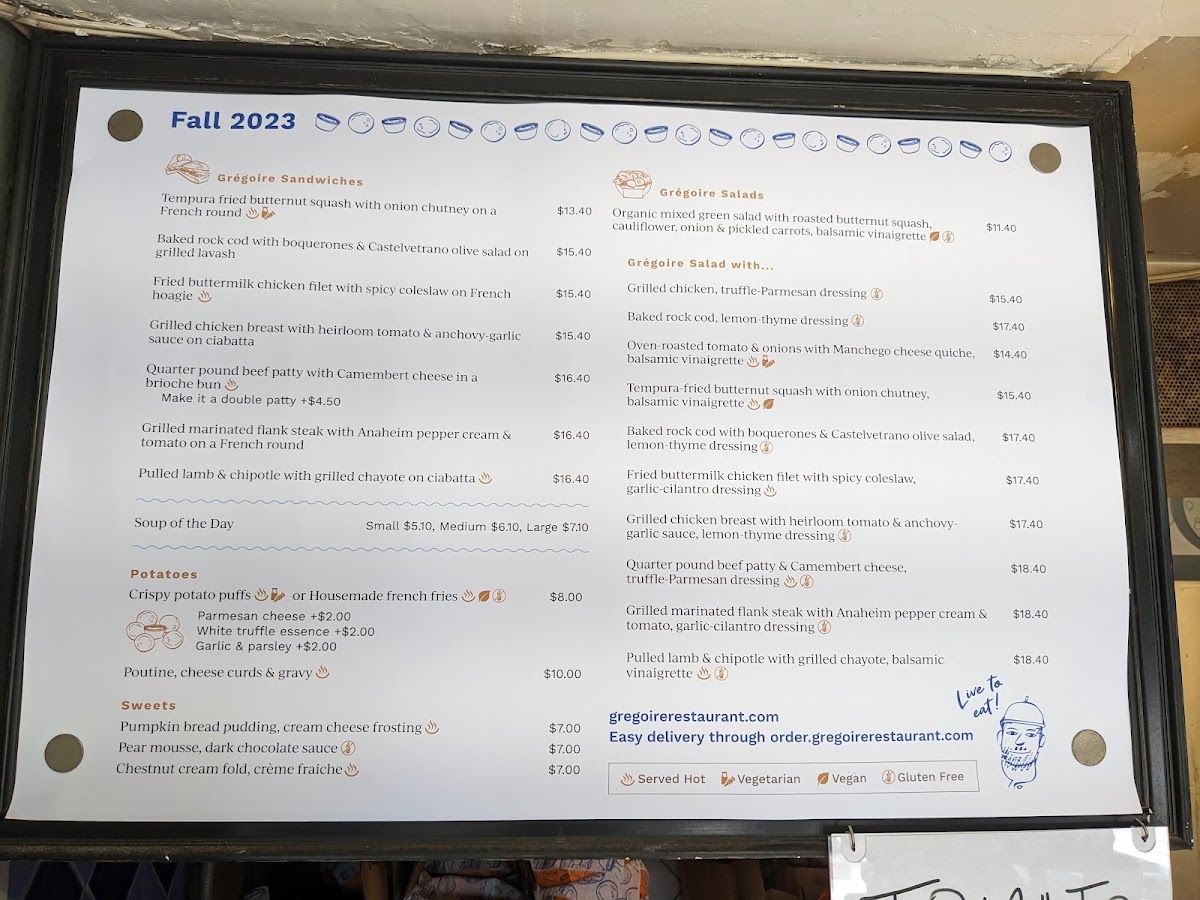 Fall 2023
Grégoire Sandwiches
Tempura fried butternut squash with onion chutney on a
French round
$13.40
Baked rock cod with boquerones & Castelvetrano olive salad on
grilled lavash
$15.40
Fried buttermilk chicken filet with spicy coleslaw on French
hoagie
$15.40
Grilled chicken breast with heirloom tomato & anchovy-garlic
sauce on ciabatta
$15.40
Quarter pound beef patty with Camembert cheese in a
brioche bun
$16.40
Make it a double patty +$4.50
Grilled marinated flank steak with Anaheim pepper cream &
tomato on a French round
$16.40
Pulled lamb & chipotle with grilled chayote on ciabatta
$16.40
Soup of the Day
Small $5.10, Medium $6.10, Large $7.10
Potatoes
Crispy potato puffs or Housemade french fries
$8.00
Parmesan cheese +$2.00
White truffle essence +$2.00
Garlic & parsley +$2.00
Poutine, cheese curds & gravy
$10.00
Sweets
Pumpkin bread pudding, cream cheese frosting
$7.00
Pear mousse, dark chocolate sauce
$7.00
Chestnut cream fold, crème fraiche
$7.00
Grégoire Salads
Organic mixed green salad with roasted butternut squash,
cauliflower, onion & pickled carrots, balsamic vinaigrette
$11.40
Grégoire Salad with...
Grilled chicken, truffle-Parmesan dressing
$15.40
Baked rock cod, lemon-thyme dressing
$17.40
Oven-roasted tomato & onions with Manchego cheese quiche,
balsamic vinaigrette
$14.40
Tempura-fried butternut squash with onion chutney,
balsamic vinaigrette
$15.40
Baked rock cod with boquerones & Castelvetrano olive salad,
lemon-thyme dressing
$17.40
Fried buttermilk chicken filet with spicy coleslaw,
garlic-cilantro dressing
$17.40
Grilled chicken breast with heirloom tomato & anchovy-
garlic sauce, lemon-thyme dressing
$17.40
Quarter pound beef patty & Camembert cheese,
truffle-Parmesan dressing
$18.40
Grilled marinated flank steak with Anaheim pepper cream &
tomato, garlic-cilantro dressing
$18.40
Pulled lamb & chipotle with grilled chayote, balsamic
vinaigrette
$18.40
Live to
eat!
gregoirerestaurant.com
Easy delivery through order.gregoirerestaurant.com
Served Hot Vegetarian Vegan Gluten Free